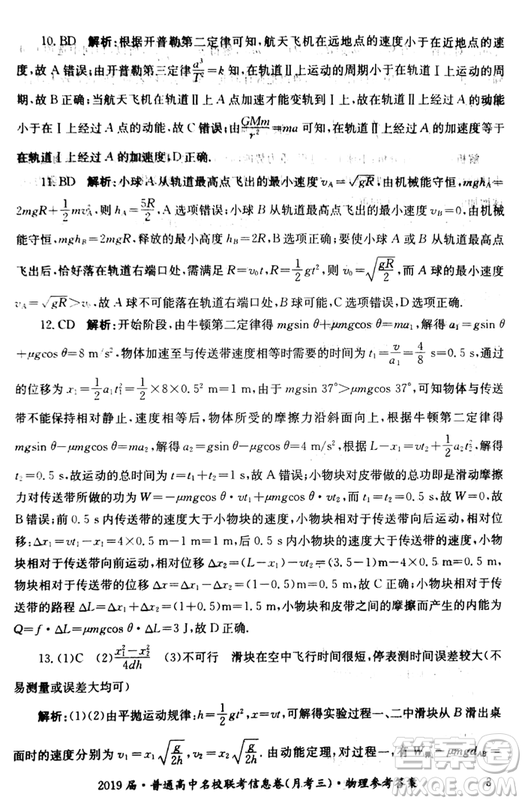 10. BD　解析:根据开普勒第二定律可知,航天飞机在远地点的速度小于在近地点的速
度,故 A 错误;由开普勒第三定律a³/T²=k 知,在轨道Ⅱ上运动的周期小于在轨道Ⅰ上运动的
周期,故 B 正确;当航天飞机在轨道Ⅱ上 A 点加速才能变轨到Ⅰ上,故在轨道Ⅱ上经过 A 的动能
小于在Ⅰ上经过 A 点的动能,故 C 错误.由GMm/r²=ma 可知,在轨道Ⅱ上经过 A 的加速度等于
在轨道Ⅰ上经过 A 的加速度,D 正确.
11. BD　解析:小球 A 从轨道最高点飞出的最小速度 vA=√gR,由机械能守恒,mghA=
2mgR+1/2mvA²,则 hA=5R/2,A 选项错误;小球 B 从轨道最高点飞出的最小速度 vB=0,由机械
能守恒,mghB=2mgR,释放的最小高度 hB=2R,B 选项正确;要使小球 A 或 B 从轨道最高点
飞出后,恰好落在轨道右端口处,需满足:R=v₀t,R=1/2gt²,则 v₀=√(gR/2),而 A 的最小速度
vA=√gR>v₀,故 A 球不可能落在轨道右端口处,B 球可能,C 选项错误、D 选项正确.
12. CD　解析:开始阶段,由牛顿第二定律得 mgsin θ+μmgcos θ=ma₁,解得 a₁=gsin
θ+μgcos θ=8 m/s²,物体加速至与传送带速度相等时需要的时间 t₁=v/a₁=4/8 s=0.5 s,通过
的位移为 x₁=1/2a₁t₁²=1/2×8×0.5²=1 m,由于 mgsin 37°>μmgcos 37°,可知物体与传送
带不能保持相对静止.速度相等后,物体所受的摩擦力沿斜面向上,根据牛顿第二定律得
mgsin θ-μmgcos θ=ma₂,解得 a₂=gsin θ-μgcos θ=4 m/s²,根据 L-x₁=vt₂+1/2a₂t₂²,解得
t₂=0.5 s,故运动的总时间为 t=t₁+t₂=1 s,故 A 错误;小物块对皮带做的总功即是滑动摩擦
力对传送带所做的功为 W=-μmgcos θ·vt₁+μmgcos θ·vt₂,因为 t₁=t₂=0.5 s,所以 W=0,故
B 错误;在第一个 0.5 s 内传送带的速度大于小物块的速度,小物块相对传送带向后运动,后退
量:Δx₁=vt₁-x₁=4×0.5 m-1 m=1 m,在第二个 0.5 s 内传送带的速度小于小物块的速度,小
物块相对传送带向前运动,前进量:Δx₂=(L-x₁)-vt₂=0.5 m,故 C 正确;小物块相对于传
送带的路程 Δx=Δx₁+Δx₂=(1+0.5)m=1.5 m,故小物块和传送带之间的摩擦而产生的内能
Q=f·Δx=μmgcos θ·Δx=3 J,故 D 正确.
13. (1)C　(2)(x₁²-x₂²)/4dh　(3)不可行　滑块在空中飞行时间极短,停表测量误差较大(不
易测量或误差大均可)
解析:(1)(2)由平抛运动规律:h=1/2gt²,x=vt,可解得实验过程一、二中滑块 M 滑出桌
面时的速度分别为 v₁=x₁√(g/2h),v₂=x₂√(g/2h),根据动能定理可得:
2019 届·普通高中名校联考信息卷(月考三)·物理参考答案